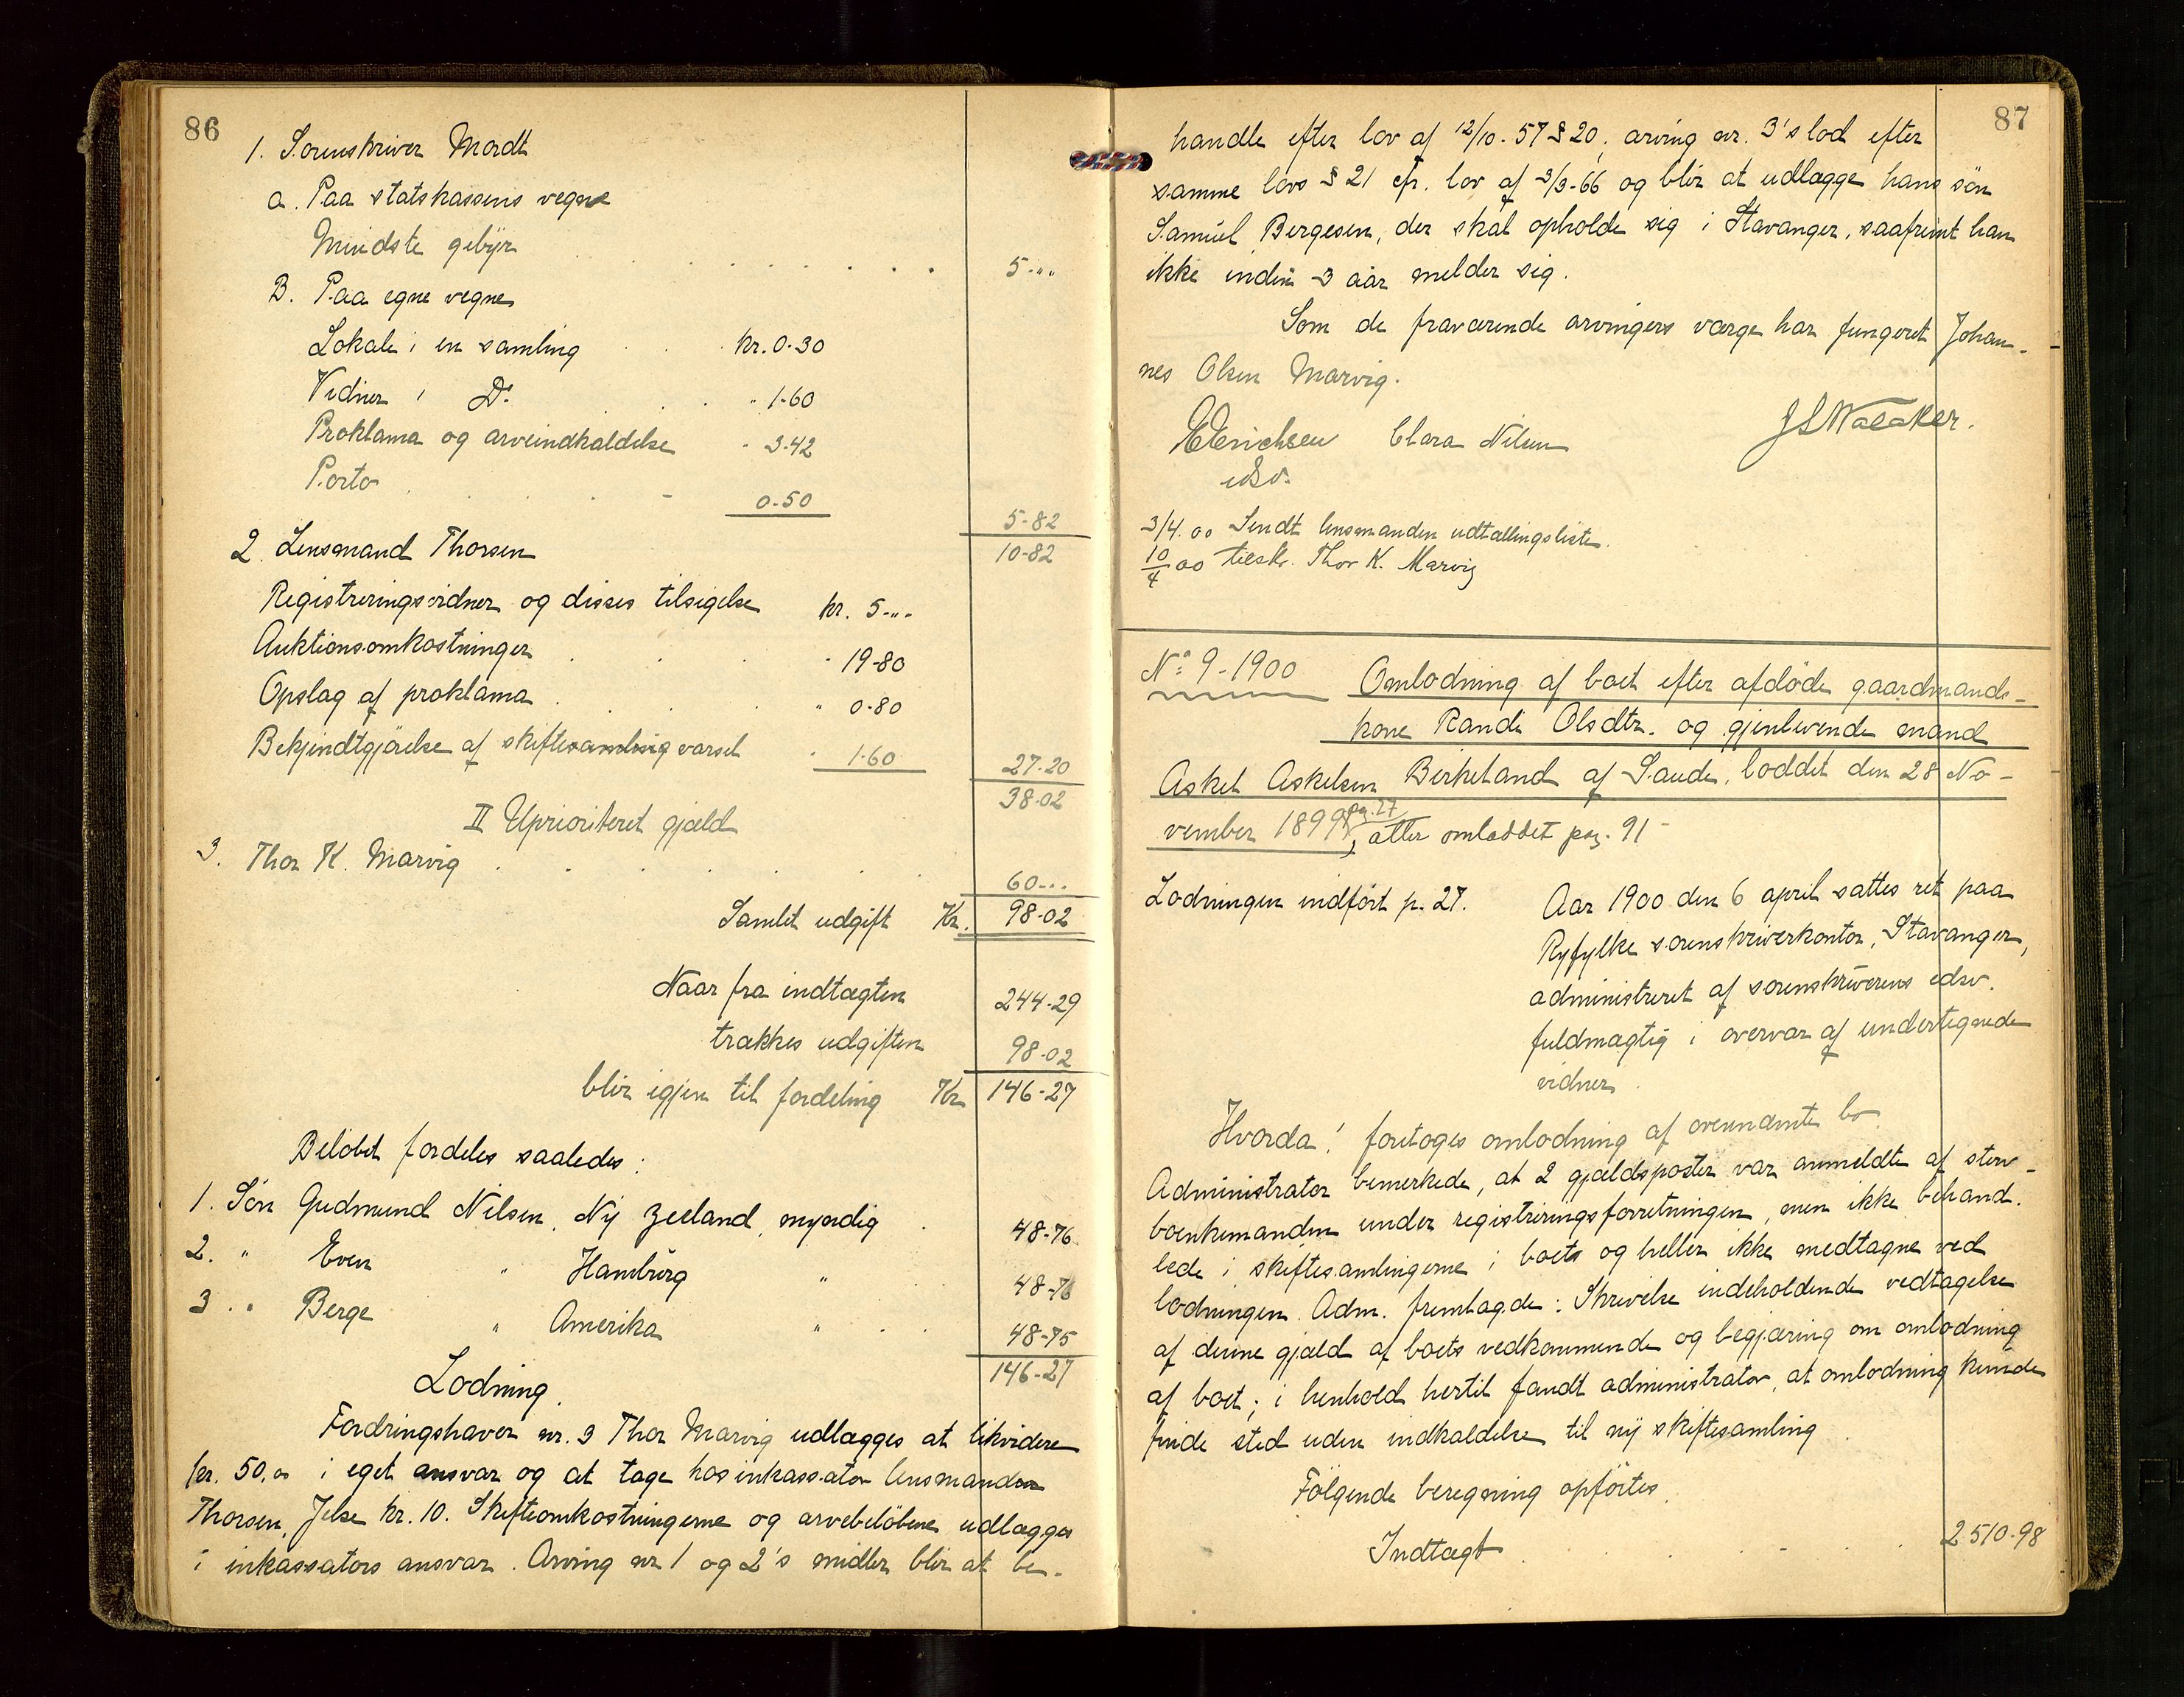 86
1. Sorenskriver Mordt
a. Paa statskassens vegne
Mindste gebyr . . . . . . . 5-""
B. Paa egne vegne
Lokale i en samling . . kr. 0-30
Vidner i Do. . . " 1-60
Proklama og arveindkaldelse " 3-42
Porto . . . . 0-50
5-82
2. Lensmand Thorsen 10-82
Registreringsvidner og disses tilsigelse kr. 5-"".
Auktionsomkostninger . . . " 19-80
Opslag af proklama . . . " 0-80
Bekjendtgjörelse af skiftesamling varsel " 1-60
27-20
38-02
II Uprioriteret gjæld
3. Thor K. Marvig . . . . . . 60-..
Samlet udgift Kr. 98-02
Naar fra indtægten 244-29
trækkes udgiften 98-02
blir igjen til fordeling Kr 146-27
Belöbet fordeles saaledes:
1. Sön Gudmund Nilsen, Ny Zeeland, myndig . 48-76
2. " Even " Hamburg " . . 48-76
3. " Berge " Amerika " . . 48-75
146-27
Lodning.
Fordringshaver nr. 3 Thor Marvig udlægges at likvidere
kr. 50,00 i eget ansvar og at tage hos inkassator lensmanden
Thorsen, Jelse kr. 10. Skifteomkostningerne og arvebelöbene udlægges
i inkassators ansvar. Arving nr 1 og 2's midler blir at be-
87
handle efter lov af 12/10-57 § 20, arving nr. 3's lod efter
samme lovs § 21 cfr. lov af 3/3-66 og blir at udlægge hans sön
Samuel Bergesen, der skal opholde sig i Stavanger, saafremt han
ikke inden 3 aar melder sig.
Som de fraværende arvingers værge har fungeret Johan-
nes Olsen Marvig.
JSWalaker.
EErichsen Clara Nilsen
edsv.
3/4.00 Sendt lensmanden udtællingsliste.
10/4 00 tilskr. Thor K. Marvig
No 9-1900 Omlodning af boet efter afdöde gaardmands-
kone Rande Olsdtr. og gjenlevende mand
Askel Askelsen Birkeland af Saude, loddet den 28 No-
vember 1899 pag. 27, atter omloddet pag. 91
Lodningen indfört p. 27.
Aar 1900 den 6 april sattes ret paa
Ryfylke sorenskriverkontor, Stavanger,
administreret af sorenskriverens edsv.
fuldmægtig i overvær af undertegnede
vidner.
Hvorda! foretoges omlodning af ovennævnte bo.
Administrator bemerkede, at 2 gjældsposter var anmeldte af sterv-
boenkemanden under registreringsforretningen, men ikke behand-
lede i skiftesamlingerne i boets og heller ikke medtagne ved
lodningen. Adm. fremlagde: Skrivelse indeholdende vedtagelse
af denne gjæld af boets vedkommende og begjæring om omlodning
af boet; i henhold hertil fandt administrator, at omlodning kunde
finde sted uden indkaldelse til ny skiftesamling
Fölgende beregning opförtes.
Indtægt . . . . . . 2510-98